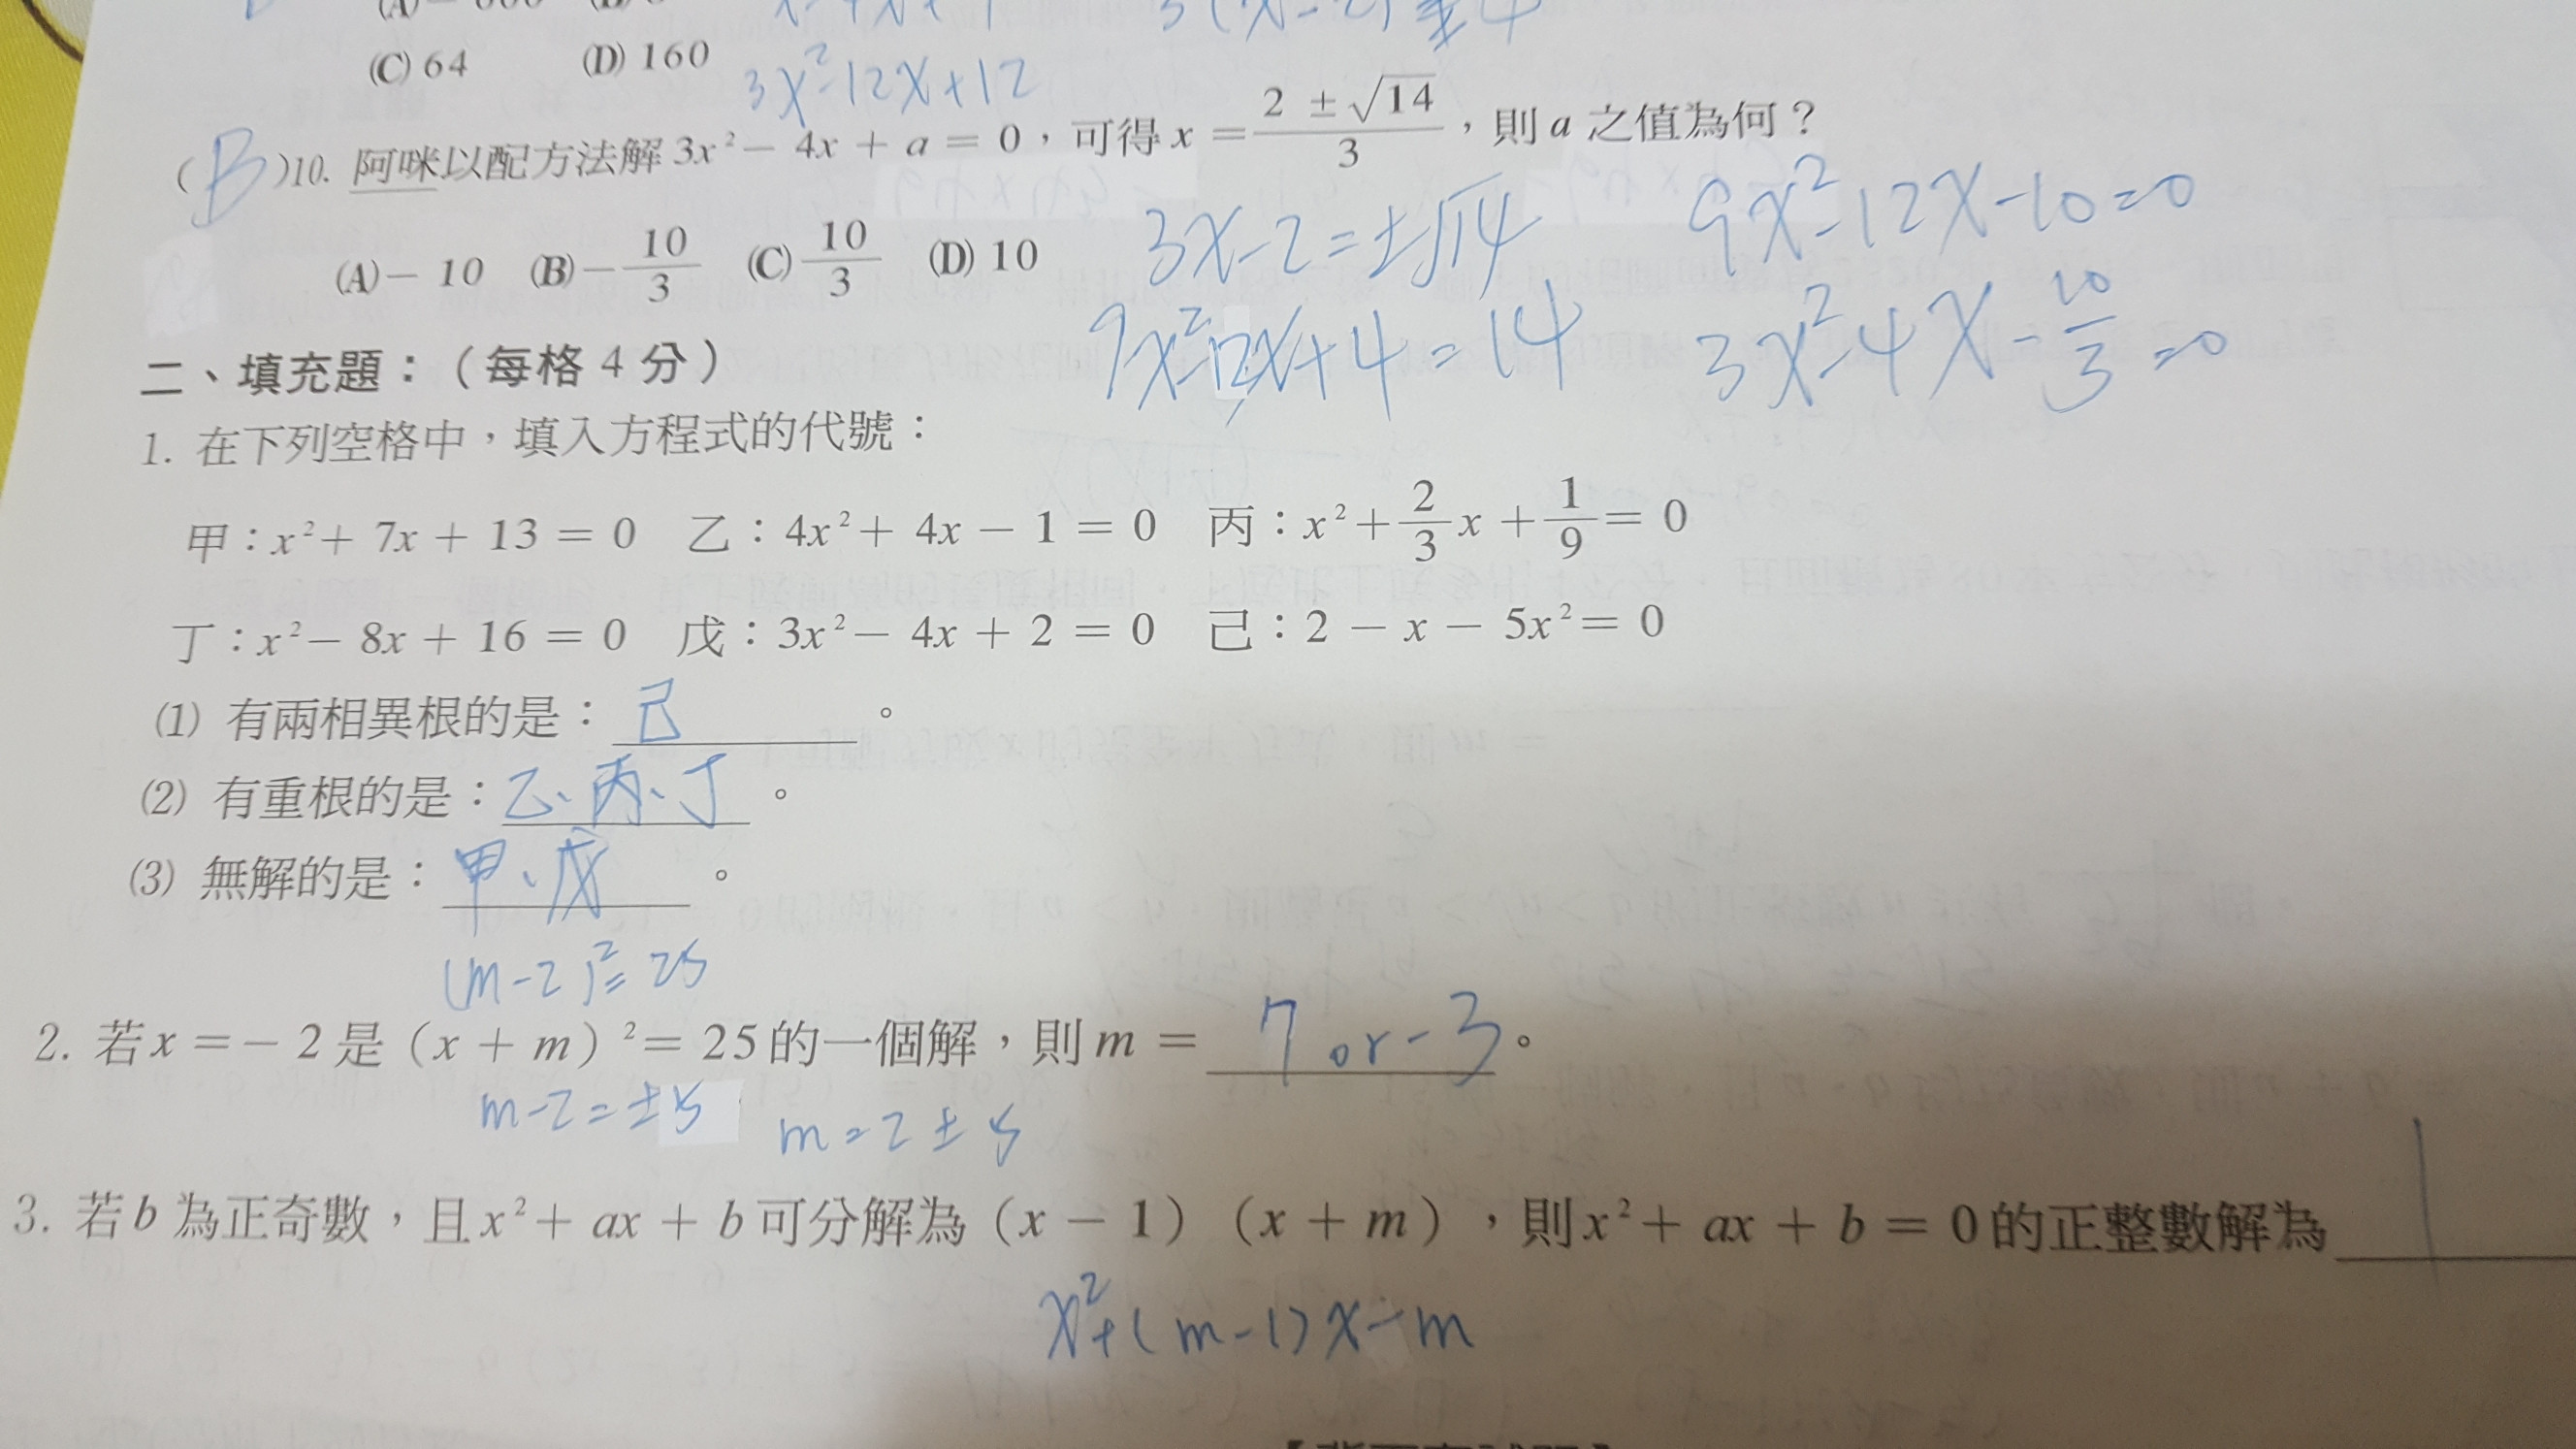 (C) 64 (D) 160
3x²-12x+12
(B)10. 阿咪以配方法解 3x²− 4x + a = 0，可得 x = (2 ±√14)/3，則 a 之值為何？
(A)− 10 (B)−10/3 (C)10/3 (D) 10
3x-2=±√14
9x²-12x+4=14
9x²-12x-10=0
3x²-4x-10/3=0
二、填充題：（每格 4 分）
1. 在下列空格中，填入方程式的代號：
甲：x²+ 7x + 13 = 0 乙：4x²+ 4x − 1 = 0 丙：x²+2/3x +1/9= 0
丁：x²− 8x + 16 = 0 戊：3x²− 4x + 2 = 0 己：2 − x − 5x²= 0
(1) 有兩相異根的是：己。
(2) 有重根的是：乙、丙、丁。
(3) 無解的是：甲、戊。
(m-2)²=25
2. 若 x =− 2 是（x + m）²= 25 的一個解，則 m = 7 or -3。
m-2=±5 m=2±5
3. 若 b 為正奇數，且 x²+ ax + b 可分解為（x − 1）（x + m），則 x²+ ax + b = 0 的正整數解為 1
x²+(m-1)x-m